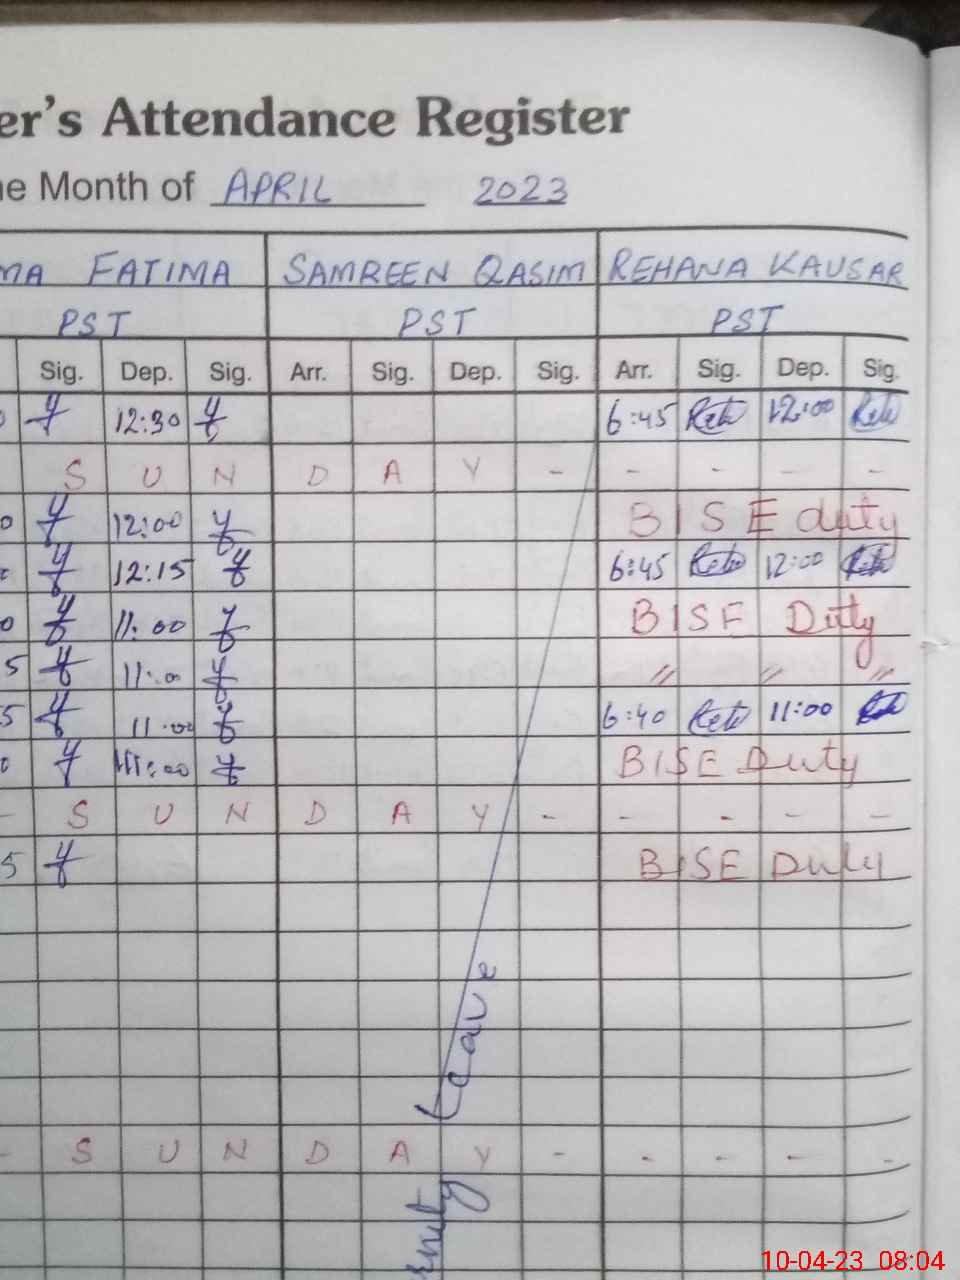 er's Attendance Register
he Month of APRIL 2023
MA FATIMA SAMREEN QASIM REHANA KAUSAR
PST PST PST
Sig. Dep. Sig. Arr. Sig. Dep. Sig. Arr. Sig. Dep. Sig.
0 12:30 6:45 12:00
S U N D A Y - - - - -
0 12:00 BISE duty
12:15 6:45 12:00
0 11:00 BISE Duty
5 11:00 " " "
5 11:00 6:40 11:00
0 11:00 BISE Duty
- S U N D A Y - - - - -
5 BISE Duty
- S U N D A Y - - - - -
rnity Leave
10-04-23 08:04